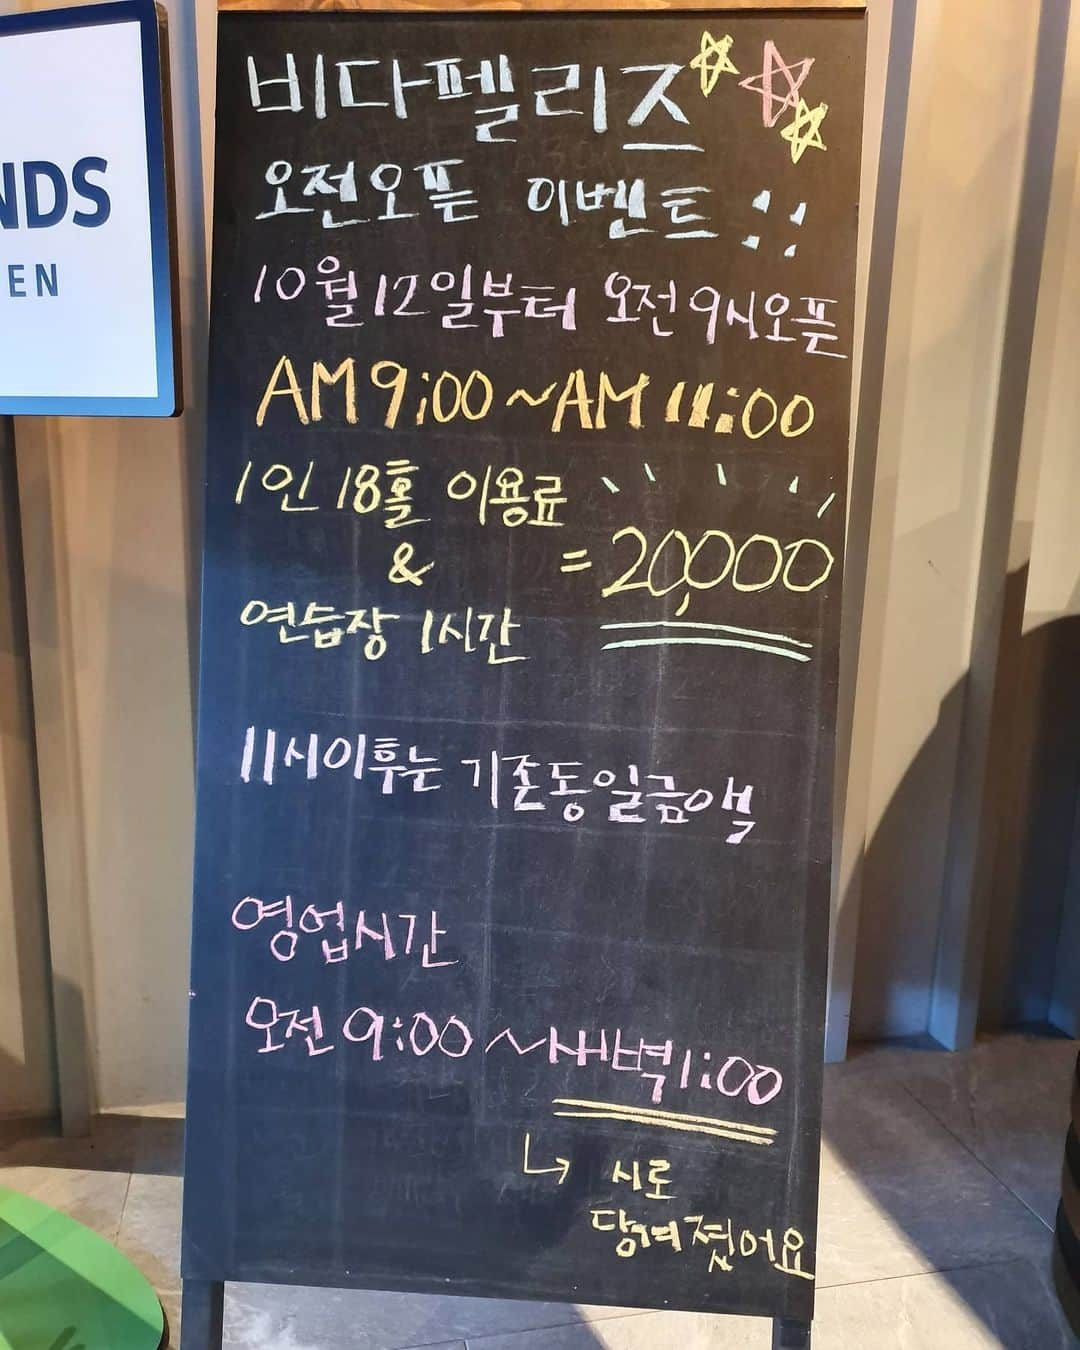 NDS
EN
비다펠리즈
오전오픈 이벤트!!
10월12일부터 오전9시오픈
AM9:00~AM11:00
1인 18홀 이용료
& = 20,000
연습장 1시간
11시이후는 기존동일금액
영업시간
오전9:00~새벽1:00
↳ 시로
당겨졌어요